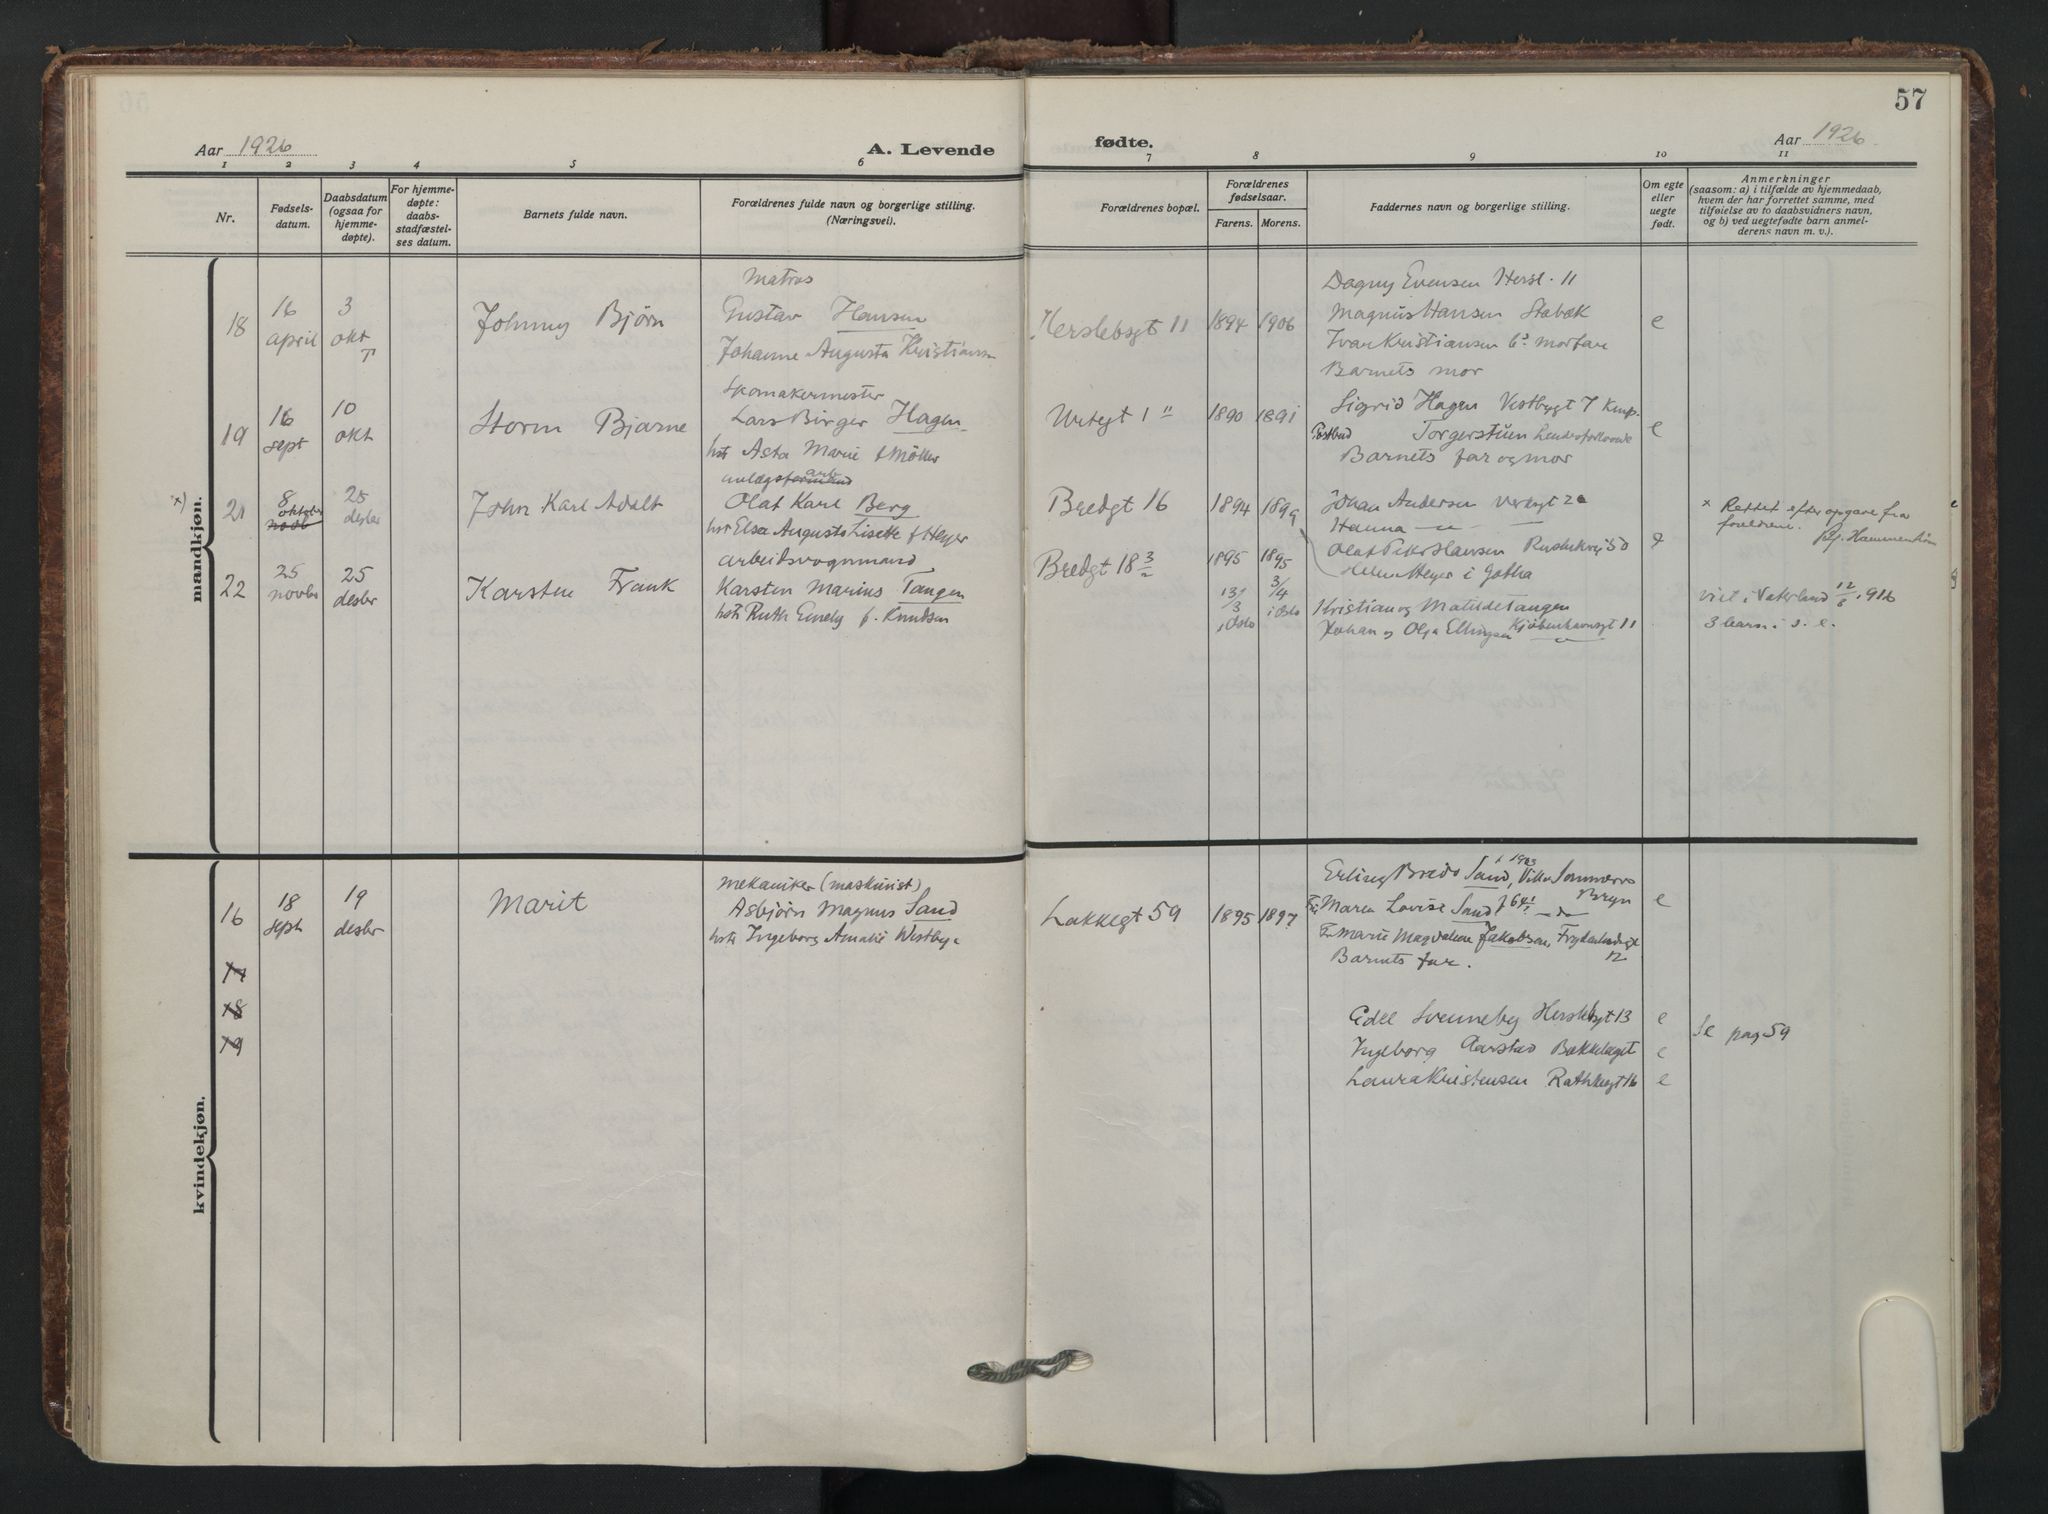 57
Aar 1926
A. Levende
fødte.
Aar 1926.
1 2 3 4 5 6 7 8 9 10 11
Nr.
Fødsels-
datum.
Daabsdatum
(ogsaa for
hjemme-
døpte).
For hjemme-
døpte:
daabs-
stadfæstel-
ses datum.
Barnets fulde navn.
Forældrenes fulde navn og borgerlige stilling.
(Næringsvei).
Forældrenes bopæl.
Forældrenes
fødselsaar.
Farens. Morens.
Faddernes navn og borgerlige stilling.
Om egte
eller
uegte
født.
Anmerkninger
(saasom: a) i tilfælde av hjemmedaab,
hvem der har forrettet samme, med
tilføielse av to daabsvidners navn,
og b) ved uegtefødte barn anmel-
derens navn m. v.).
mandkjøn.
18
16
april
3
okt
Johnny Bjørn
Matros
Gustav Hansen
Johanne Augusta Kristiansen
Herslebsgt 11
1894 1906
Dagny Evensen Hersl. 11
Magnus Hansen Stabæk
Ivar Kristiansen morfar
Barnets mor
e
19
16
sept
10
okt
Storm Bjarne
Skomakermester
Lars Birger Hagen
hstr Asta Marie f Möller
Urtegt 1
1890 1891
Sigrid Hagen Vestbygt 7
Postbud Torgerstuen
Barnets far og mor
e
x)
21
8
oktober
novb
25
desbr
John Karl Adolt
anlægsformand arb
Olaf Karl Berg
hstr Elsa Augusta Lisette f Heyer
Bredgt 16
1894 1899
Johan Andersen
Hanna —"—
Olaf Peter Hansen
Helene Heyer i Gotha
x Rettet efter opgave fra
foreldrene.
22
25
novbr
25
desbr
Karsten Frank
arbeidsvognmand
Karsten Marius Tangen
hstr Ruth Emely f. Knudsen
Bredgt 18 3/2
1895 1895
13/3
i Oslo
3/4
i Oslo
Kristian og Matilde Tangen
Johan og Olga Ellingsen Kjøbenhavnsgt 11
viet i Vaterland 12/8 1916
3 barn i s. e.
kvindekjøn.
16
18
sept
19
desbr
Marit
mekaniker (maskinist)
Asbjørn Magnus Sand
hstr Ingeborg Amalie Westbye
Lakkegt 59
1895 1897
Erling Bredo Sand, f 1903 Villa Sommerro
Bryn
Fru Maren Lovise Sand f 64 —"—
Fr Marie Magdalene Jakobsen,
Barnets far.
e
17
18
19
Edel Svenneby Herslebsgt 13 e
Ingeborg Aarstad Bækkelaget e
Laura Kristensen Rathkesgt 16 e
Se pag 59